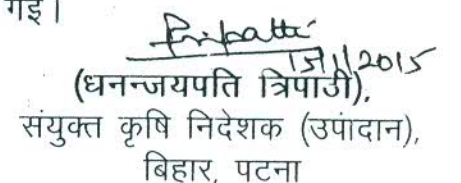 गई।
Tripathi
15/1/2015
(धनन्जयपति त्रिपाठी),
संयुक्त कृषि निदेशक (उपादान),
बिहार, पटना